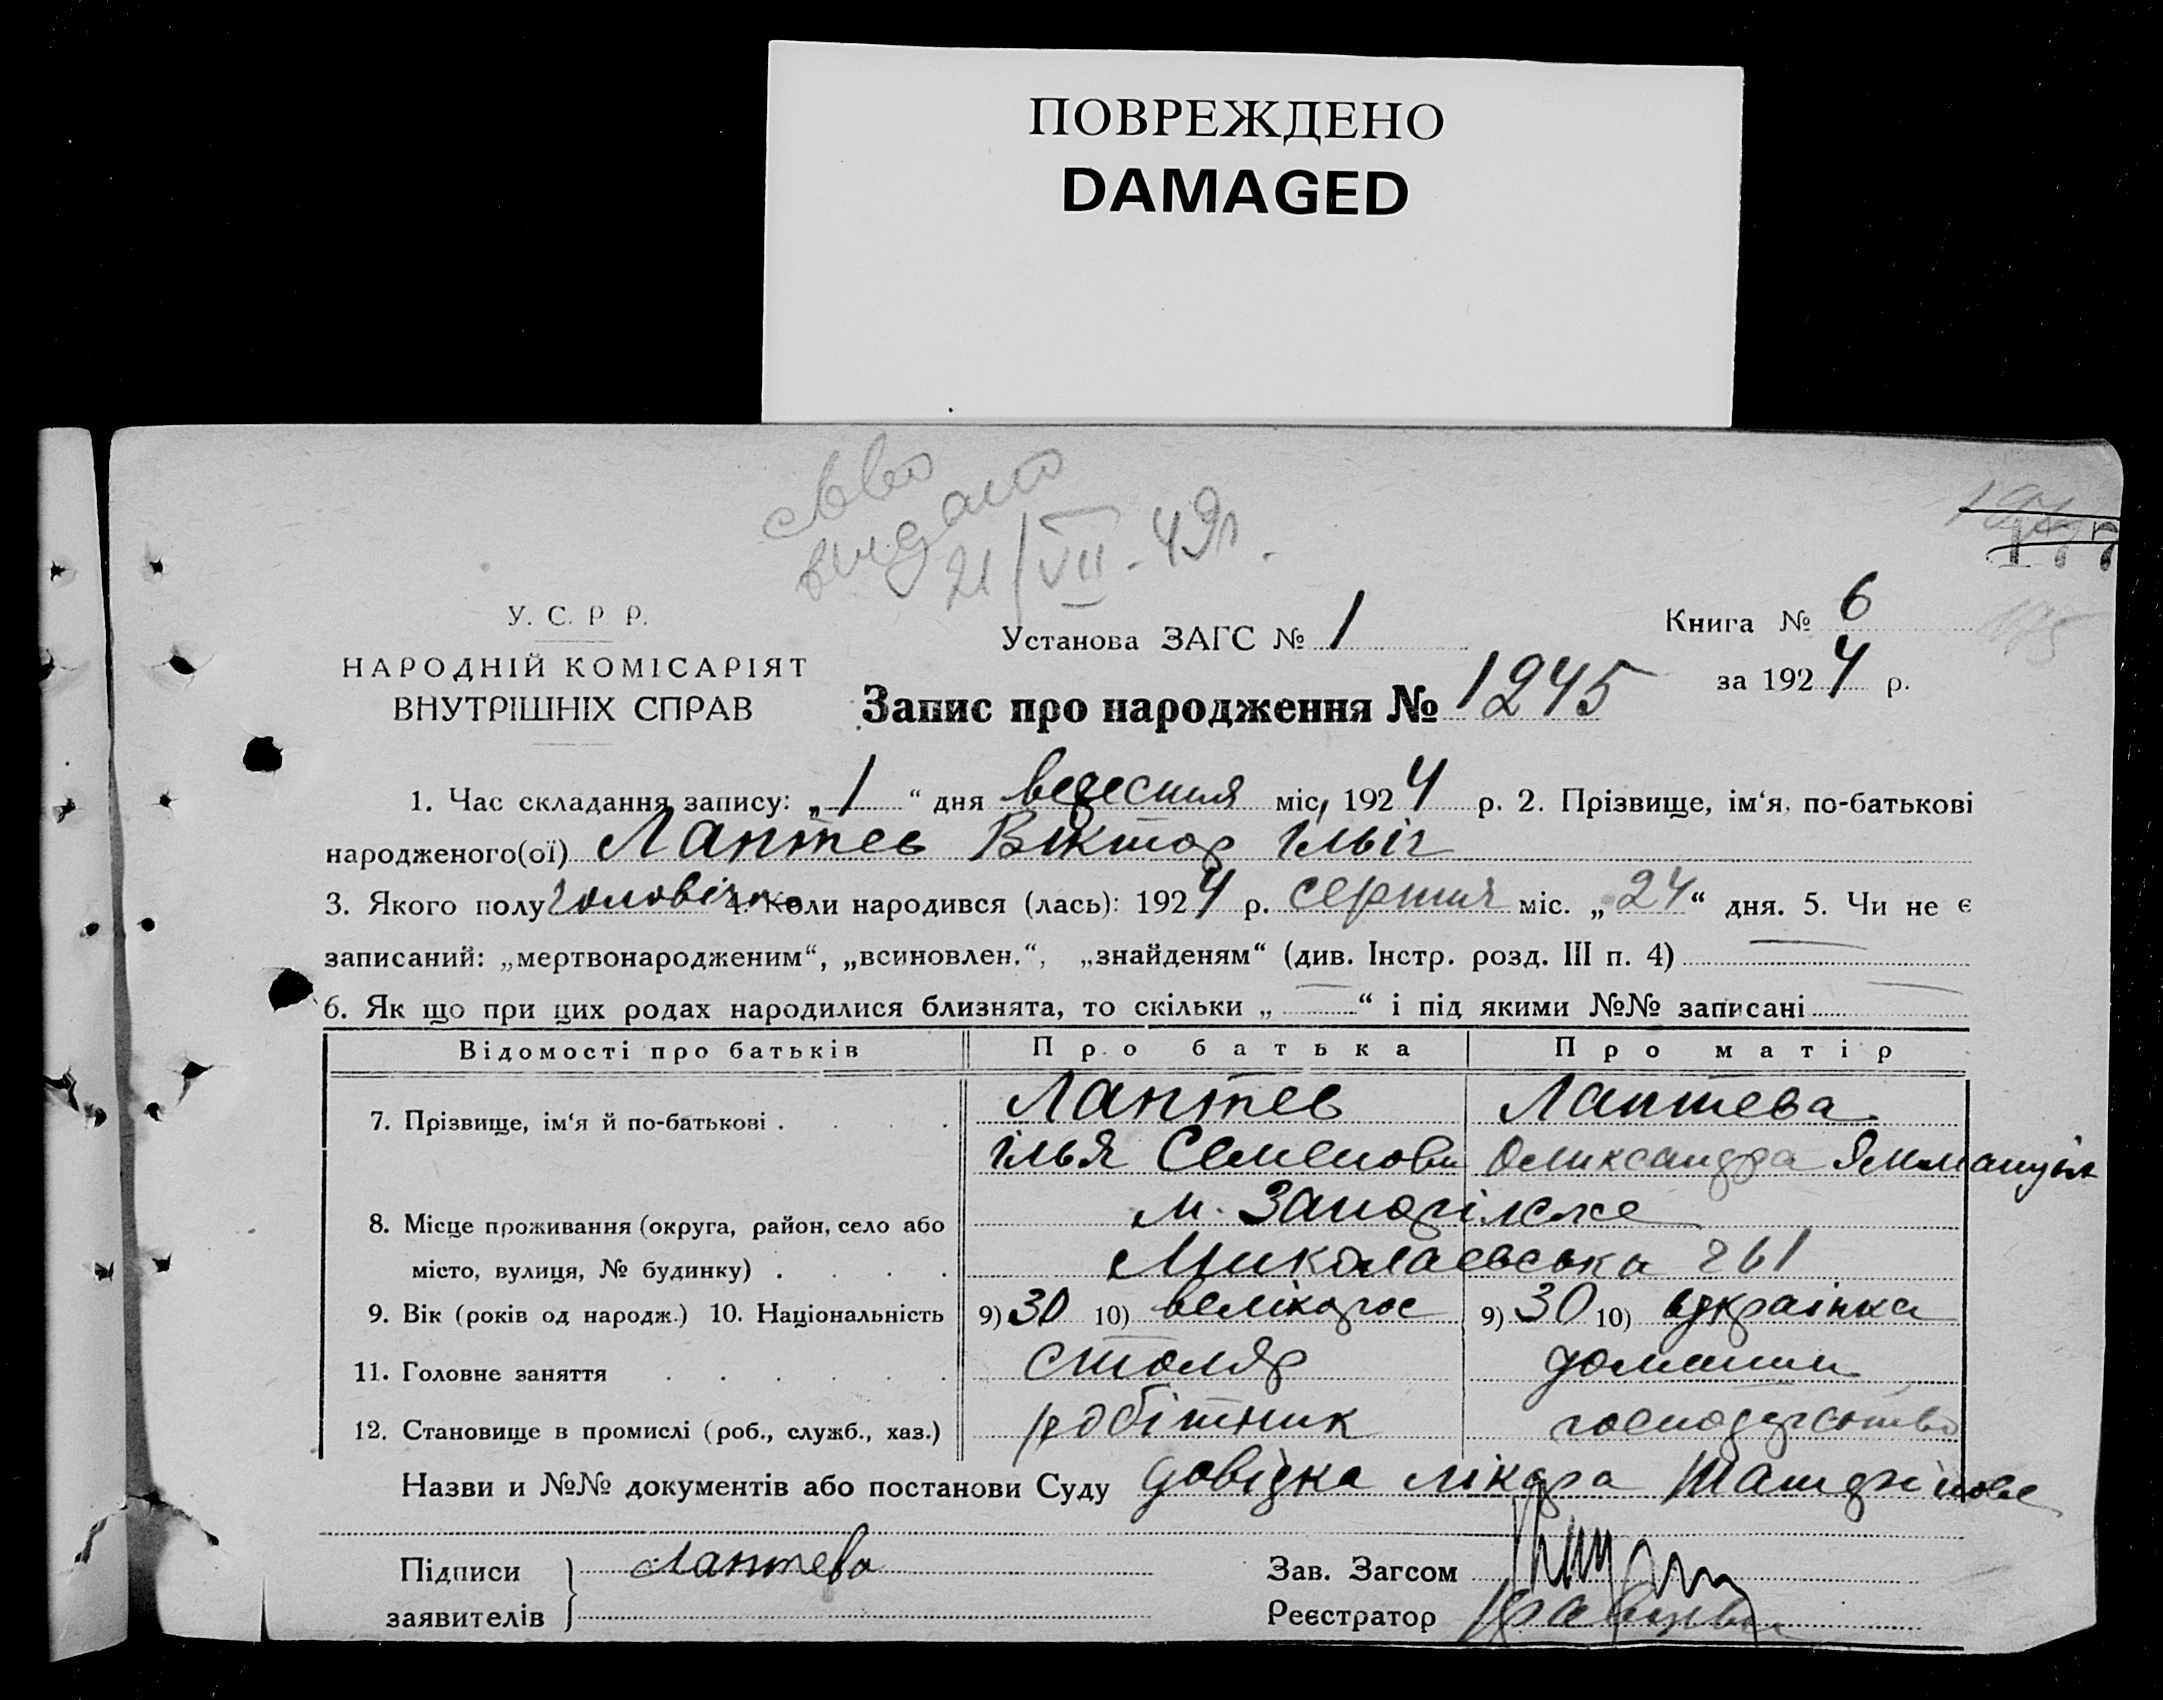 ПОВРЕЖДЕНО
DAMAGED
видано
21/VII-49г.
177
175
У. С. Р Р.
НАРОДНІЙ КОМІСАРІЯТ
ВНУТРІШНІХ СПРАВ
Установа ЗАГС № 1
Книга № 6
за 1924 р.
Запис про народження № 1245
1. Час складання запису: „1“ дня вересня міс, 1924 р. 2. Прізвище, ім‘я, по-батькові
народженого(ої) Лаптев Віктор Ільіч
3. Якого полу чоловіч. 4. Коли народився (лась): 1924 р. серпня міс. „24“ дня. 5. Чи не є
записаний: „мертвонародженим“, „всиновлен.“, „знайденям“ (див. Інстр. розд. III п. 4)
6. Як що при цих родах народилися близнята, то скільки „ “ і під якими №№ записані
Відомості про батьків Про батька Про матір
7. Прізвище, ім‘я й по-батькові . Лаптев Лаптева
Ілья Семенови Олександра
8. Місце проживання (округа, район, село або м. Запоріжже
місто, вулиця, № будинку) . Миколаевська 261
9. Вік (років од народж.) 10. Національність 9) 30 10) великорос 9) 30 10) украінка
11. Головне заняття столяр домашн
12. Становище в промислі (роб., служб., хаз.) робітник господарство
Назви и №№ документів або постанови Суду Довідка лікаря
Підписи Лаптева
заявителів
Зав. Загсом
Реєстратор